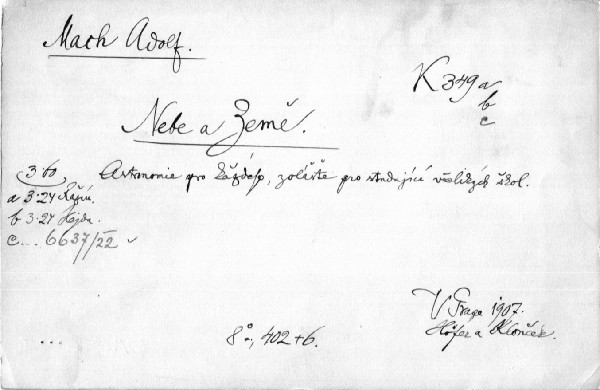 Mach Adolf.
K 349 a
b
c
Nebe a Země.
Astronomie pro každého, zvláště pro studující všelikých škol.
360
a 3·24
b 3·27 Hejda.
c... 6637/22
V Praze 1907.
Höfer a Klouček.
8o, 402+6.
...